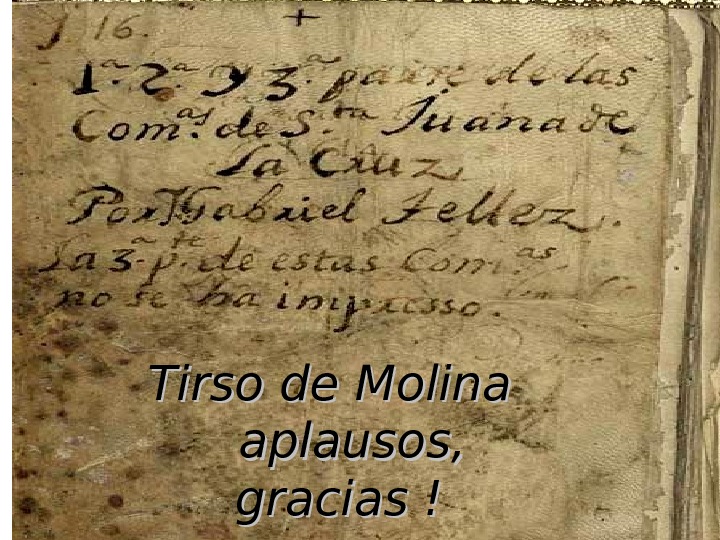 J 16. +
1.ª 2.ª y 3.ª parte de las
Com.as de S.ta Juana de
la Cruz
Por Gabriel Tellez.
La 3.ª p.te de estas Com.as
no se ha impresso.
Tirso de Molina
aplausos,
gracias !